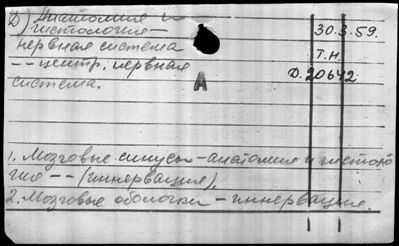 Д) Анатомия и
гистология—
нервная система
-- центр. нервная
система.
30.3.59.
Т.Н.
Д.20642
А
1. Мозговые синусы - анатомия и гистоло
гия -- (иннервация).
2. Мозговые оболочки - иннервация.